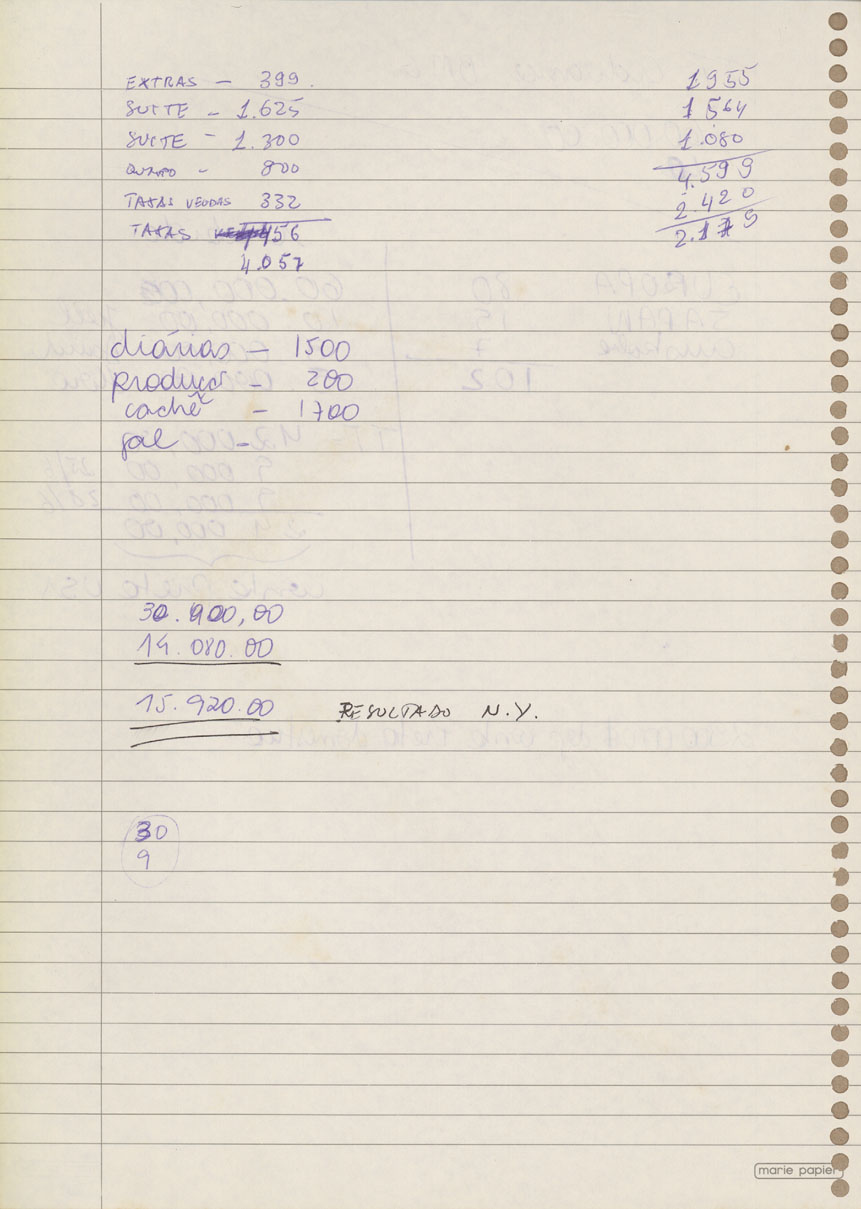 EXTRAS - 399.
SUITE - 1.625
SUITE - 1.300
QUARTO - 800
TAXAS VENDAS 332
TAXAS 456
4.057
1955
1564
1.080
4.599
2.420
2.179
diárias - 1500
produção - 200
cachê - 1700
gal -
30.000,00
14.080.00
15.920.00 RESULTADO N.Y.
30
9
marie papier